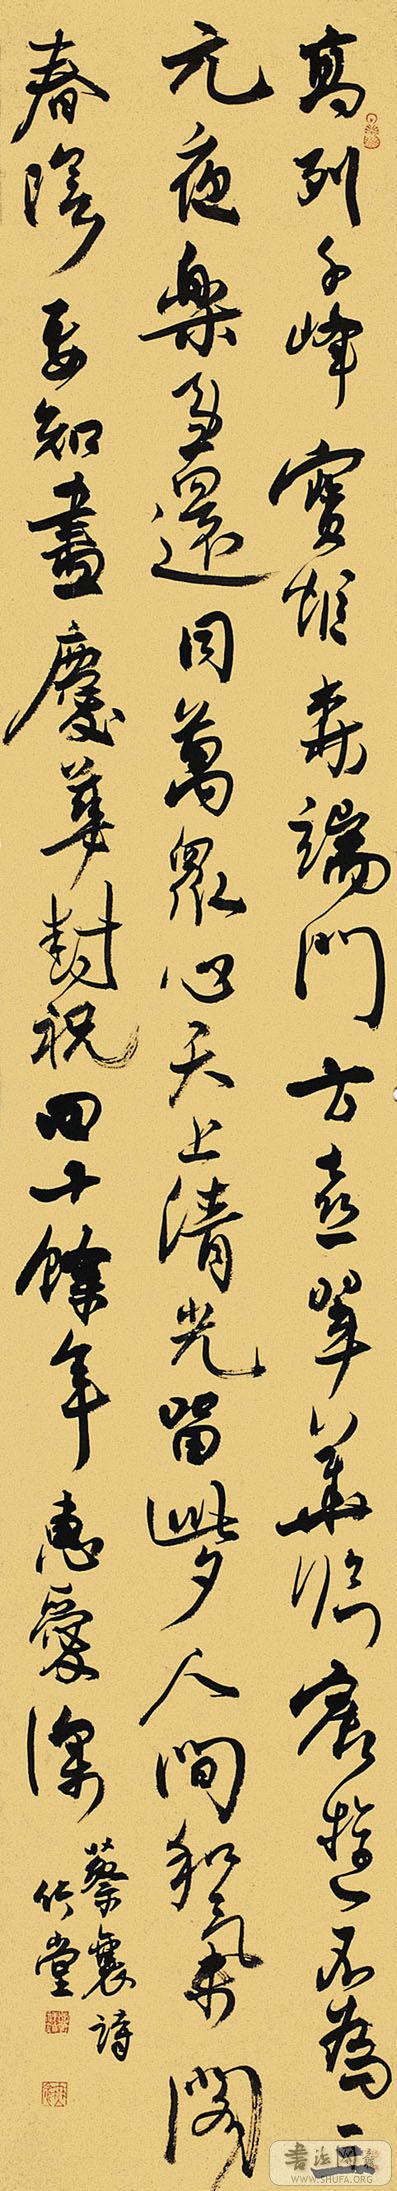 高列千峰寶炬森端門方喜翠華臨宸遊不爲三
元夜樂事還同萬眾心天上清光留此夕人間和氣閣
春陰要知盡慶華封祝四十餘年惠愛深
蔡襄詩
竹堂
書法网
WWW.SHUFA.ORG